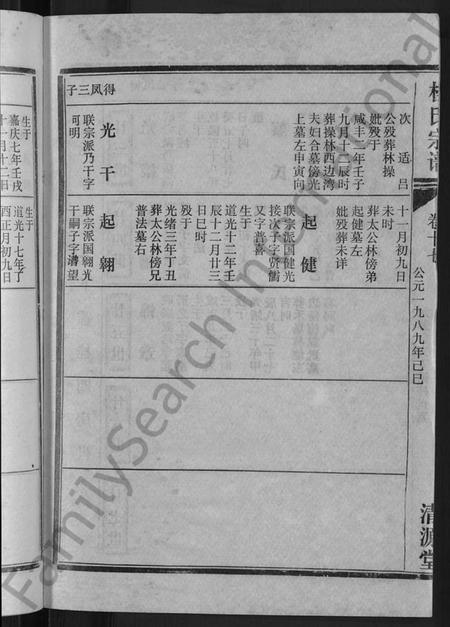 得凤三子
次适吕
公殁葬林操
妣殁于
咸丰二年壬子
九月十二辰时
葬操林西边湾
夫妇合墓傍光
上墓左申寅向
光干
联宗派乃干字
可明
十一月初九日
未时
葬太公林傍弟
起健墓左
妣殁葬未详
起健
联宗派国健光
接次子字贤儒
又字普喜
生于
道光十二年壬
辰十二月廿三
日巳时
殁于
光绪三年丁丑
葬太公林傍兄
普法墓右
起翱
联宗派国翱光
干嗣子字清望
杜氏宗谱
卷十七
公元一九八九年己巳
清源堂
生于
嘉庆七年壬戌
十一月十二日
生于
道光十七年丁
酉正月初九日
FamilySearch International